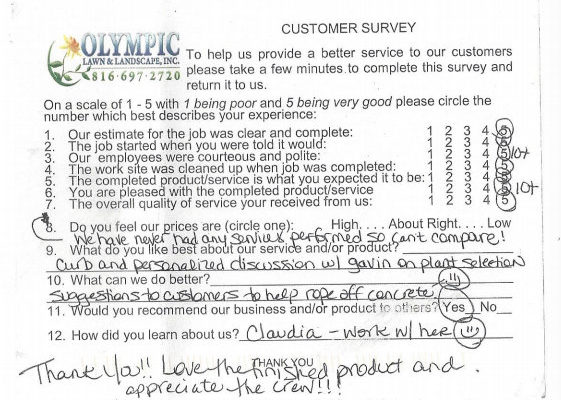 CUSTOMER SURVEY
OLYMPIC
LAWN & LANDSCAPE, INC.
816·697·2720
To help us provide a better service to our customers
please take a few minutes to complete this survey and
return it to us.
On a scale of 1 - 5 with 1 being poor and 5 being very good please circle the
number which best describes your experience:
1. Our estimate for the job was clear and complete: 1 2 3 4 5
2. The job started when you were told it would: 1 2 3 4 5
3. Our employees were courteous and polite: 1 2 3 4 5 10+
4. The work site was cleaned up when job was completed: 1 2 3 4 5
5. The completed product/service is what you expected it to be: 1 2 3 4 5
6. You are pleased with the completed product/service 1 2 3 4 5 10+
7. The overall quality of service your received from us: 1 2 3 4 5
8. Do you feel our prices are (circle one): High. . . . About Right. . . . Low
We have never had any services performed so can't compare!
9. What do you like best about our service and/or product?
Curb and personalized discussion w/ gavin on plant selection
10. What can we do better?
suggestions to customers to help rope off concrete
11. Would you recommend our business and/or product to others? Yes No
12. How did you learn about us? Claudia - work w/ her
THANK YOU
Thank You!! Love the finished product and
appreciate the crew!!!